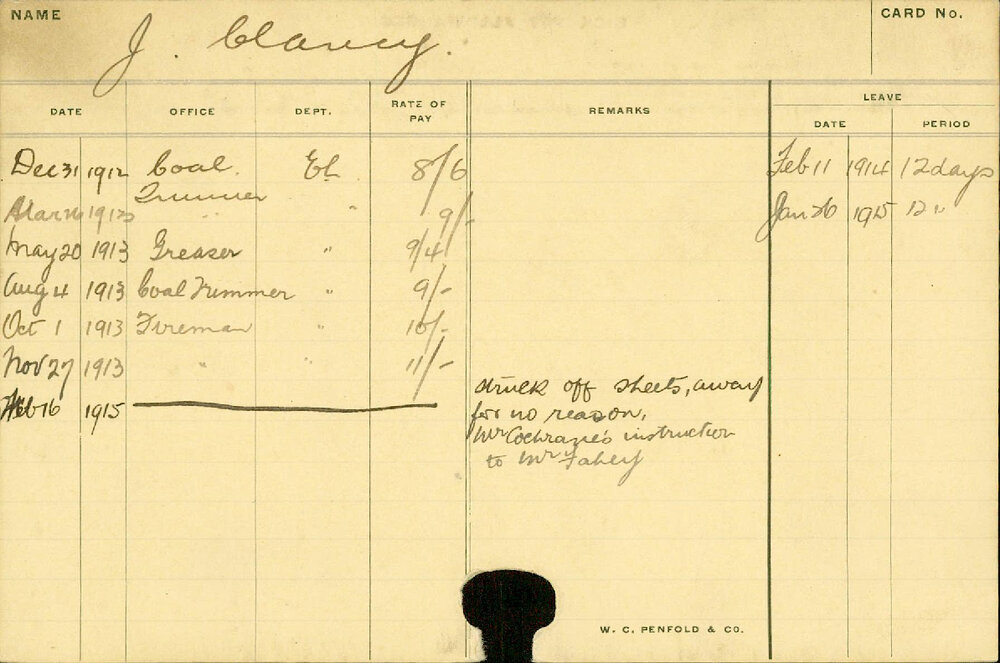 NAME
CARD No.
J. Clancy.
DATE OFFICE DEPT. RATE OF PAY REMARKS LEAVE
DATE PERIOD
Dec 31 1912 Coal Trimmer EL 8/6 Feb 11 1914 12 days
Mar 1913 " " 9/- Jan 26 1915 12 "
May 20 1913 Greaser " 9/4
Aug 4 1913 Coal Trimmer " 9/-
Oct 1 1913 Fireman " 10/-
Nov 27 1913 " " 11/-
Feb 16 1915
struck off sheets, away
for no reason,
Mr Cochrane's instruction
to Mr Fahey
W. C. PENFOLD & CO.